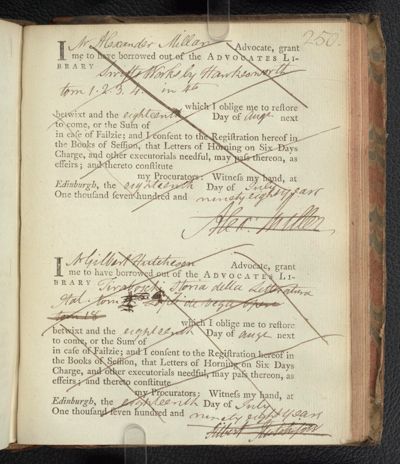 250.
I Mr Alexander Millar Advocate, grant
me to have borrowed out of the ADVOCATES LI-
BRARY Swifts Works by Hawkesworth
tom 1. 2. 3. 4. in 4to
which I oblige me to restore
betwixt and the eighteenth Day of Augt next
to come, or the Sum of
in case of Failzie; and I consent to the Registration hereof in
the Books of Session, that Letters of Horning on Six Days
Charge, and other executorials needful, may pass thereon, as
effeirs; and thereto constitute
my Procurators: Witness my hand, at
Edinburgh, the eighteenth Day of July
One thousand seven hundred and ninety eight years
Alexr Millar
I Mr Gilbert Hutcheson Advocate, grant
me to have borrowed out of the ADVOCATES LI-
BRARY Tiraboschi Storia della Letteratura
Ital. tom
tom 18
which I oblige me to restore
betwixt and the eighteenth Day of Augt next
to come, or the Sum of
in case of Failzie; and I consent to the Registration hereof in
the Books of Session, that Letters of Horning on Six Days
Charge, and other executorials needful, may pass thereon, as
effeirs; and thereto constitute
my Procurators: Witness my hand, at
Edinburgh, the eighteenth Day of July
One thousand seven hundred and ninety eight years
Gilbert Hutcheson